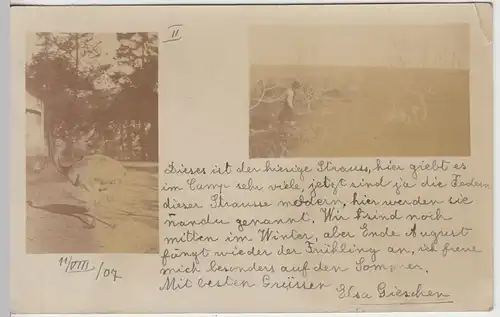 II
Dieses ist der hiesige Strauss, hier giebt es
im Camp sehr viele, jetzt sind ja die Federn
dieser Strausse modern, hier werden sie
ñandu genannt. Wir sind noch
mitten im Winter, aber Ende August
fängt wieder der Frühling an, ich freue
mich besonders auf den Sommer.
Mit besten Grüssen
Elsa Gieschen
11/VIII/07